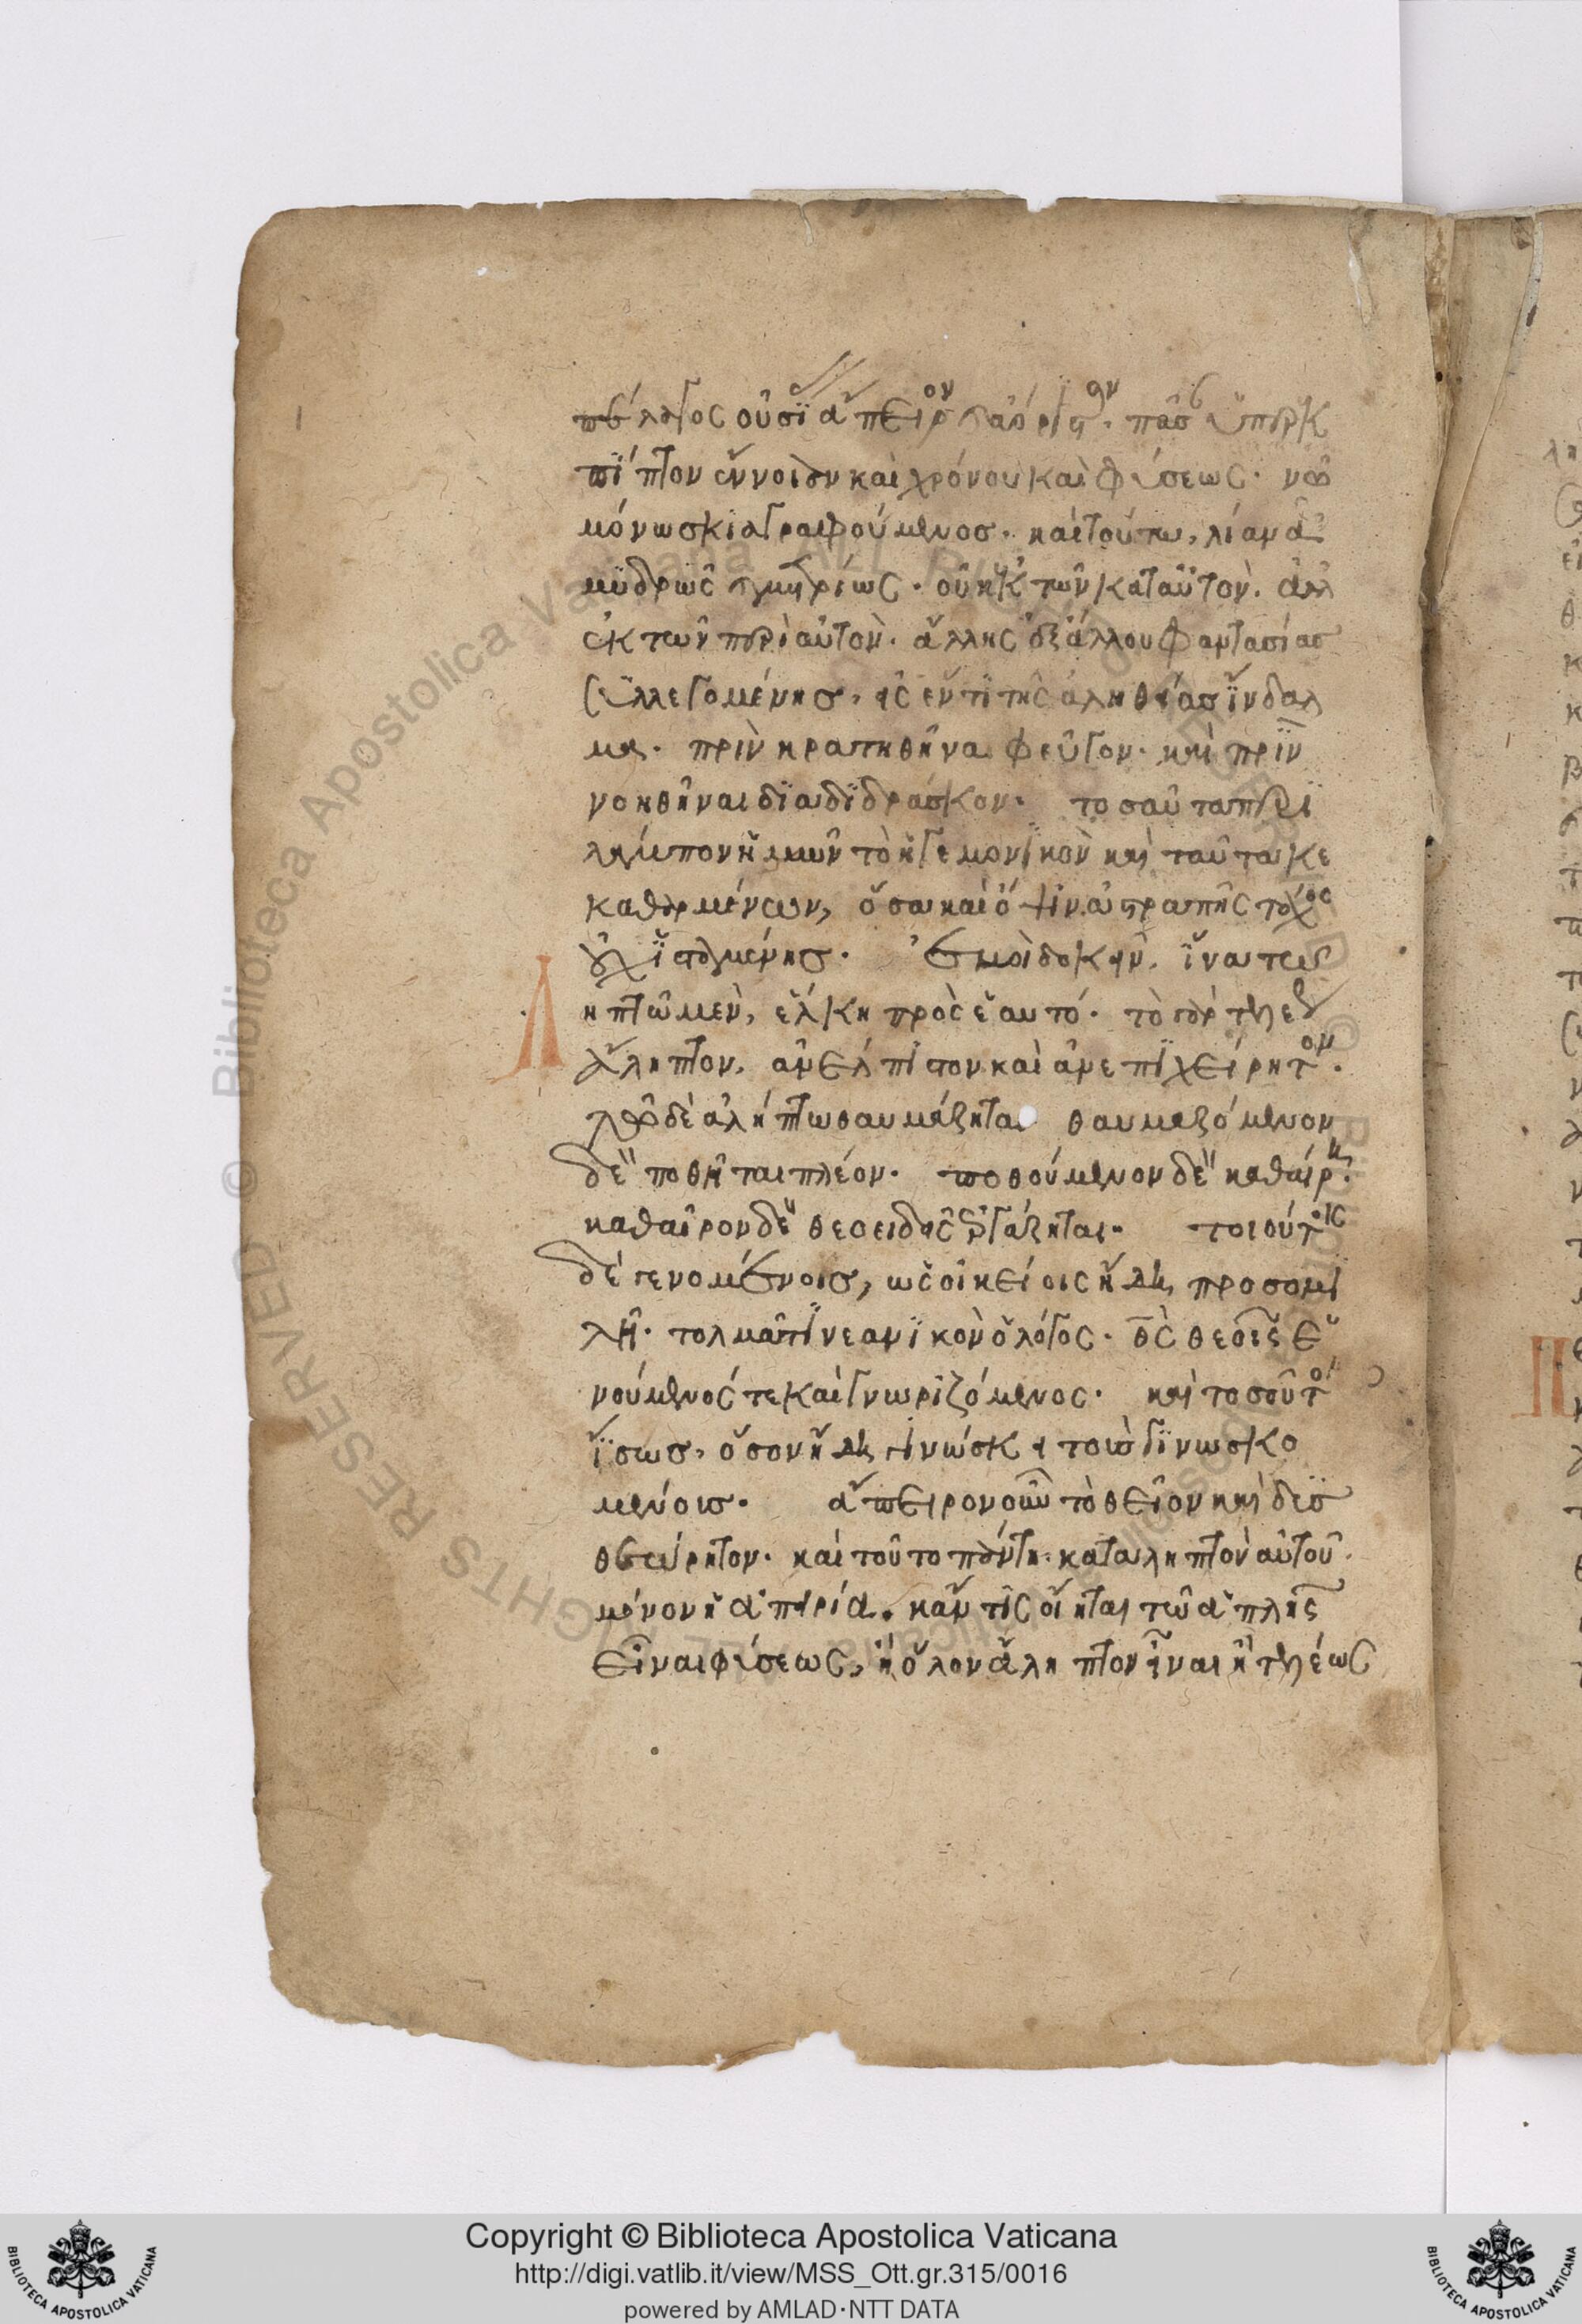 πέλαγος οὐσίας ἄπειρον καὶ ἀόριστον. πᾶσαν ὑπερεκ
πίπτον ἔννοιαν καὶ χρόνου καὶ φύσεως. νῶ
μόνω σκιαγραφούμενος. καὶ τούτω, λίαν ἀ
μυδρῶς καὶ μετρίως. οὐκ ἐκ τῶν κατ αὐτὸν. ἀλλ
ἐκ τῶν περὶ αὐτὸν. ἄλλης ἐξ ἄλλου φαντασίας
συλλεγομένης, εἰς ἕν τι τῆς ἀληθείας ἴνδαλ
μα. πρὶν κρατηθῆναι φεῦγον. καὶ πρὶν
νοηθῆναι διαδιδράσκον. τοσαῦτα περι
λάμπον ἡμῶν τὸ ἡγεμονικὸν καὶ ταῦτα κε
καθαρμένων, ὅσα καὶ ὄψιν ἀστραπῆς τάχος
οὐχ ἱσταμένης. ἐμοὶ δοκεῖν, ἵνα τῶ
ληπτῶ μὲν, ἕλκη πρὸς ἑαυτό. τὸ γὰρ τελέως
ἄληπτον, ἀνέλπιστον καὶ ἀνεπιχείρητον.
τῶ δὲ ἀλήπτω θαυμάζηται θαυμαζόμενον
δὲ ποθῆται πλέον. ποθούμενον δὲ καθαίρη.
καθαῖρον δὲ θεοειδεῖς ἐργάζηται. τοιούτοις
δὲ γενομένοις, ὡς οἰκείοις ἤδη προσομι
λῆ. τολμᾶ τι νεανικὸν ὁ λόγος. θς θεοῖς ἑ
νούμενός τε καὶ γνωριζόμενος. καὶ τοσοῦτον
ἴσως, ὅσον ἤδη γινώσκει τοὺς γινωσκο
μένους. ἄπειρον οὖν τὸ θεῖον καὶ δυσ
θεώρητον. καὶ τοῦτο πάντη καταληπτὸν αὐτοῦ.
μόνον ἡ ἀπειρία. κἄν τις οἴηται τῶ ἁπλῆς
εἶναι φύσεως, ἢ ὅλον ἄληπτον εἶναι ἢ τελέως
Copyright © Biblioteca Apostolica Vaticana
http://digi.vatlib.it/view/MSS_Ott.gr.315/0016
powered by AMLAD·NTT DATA